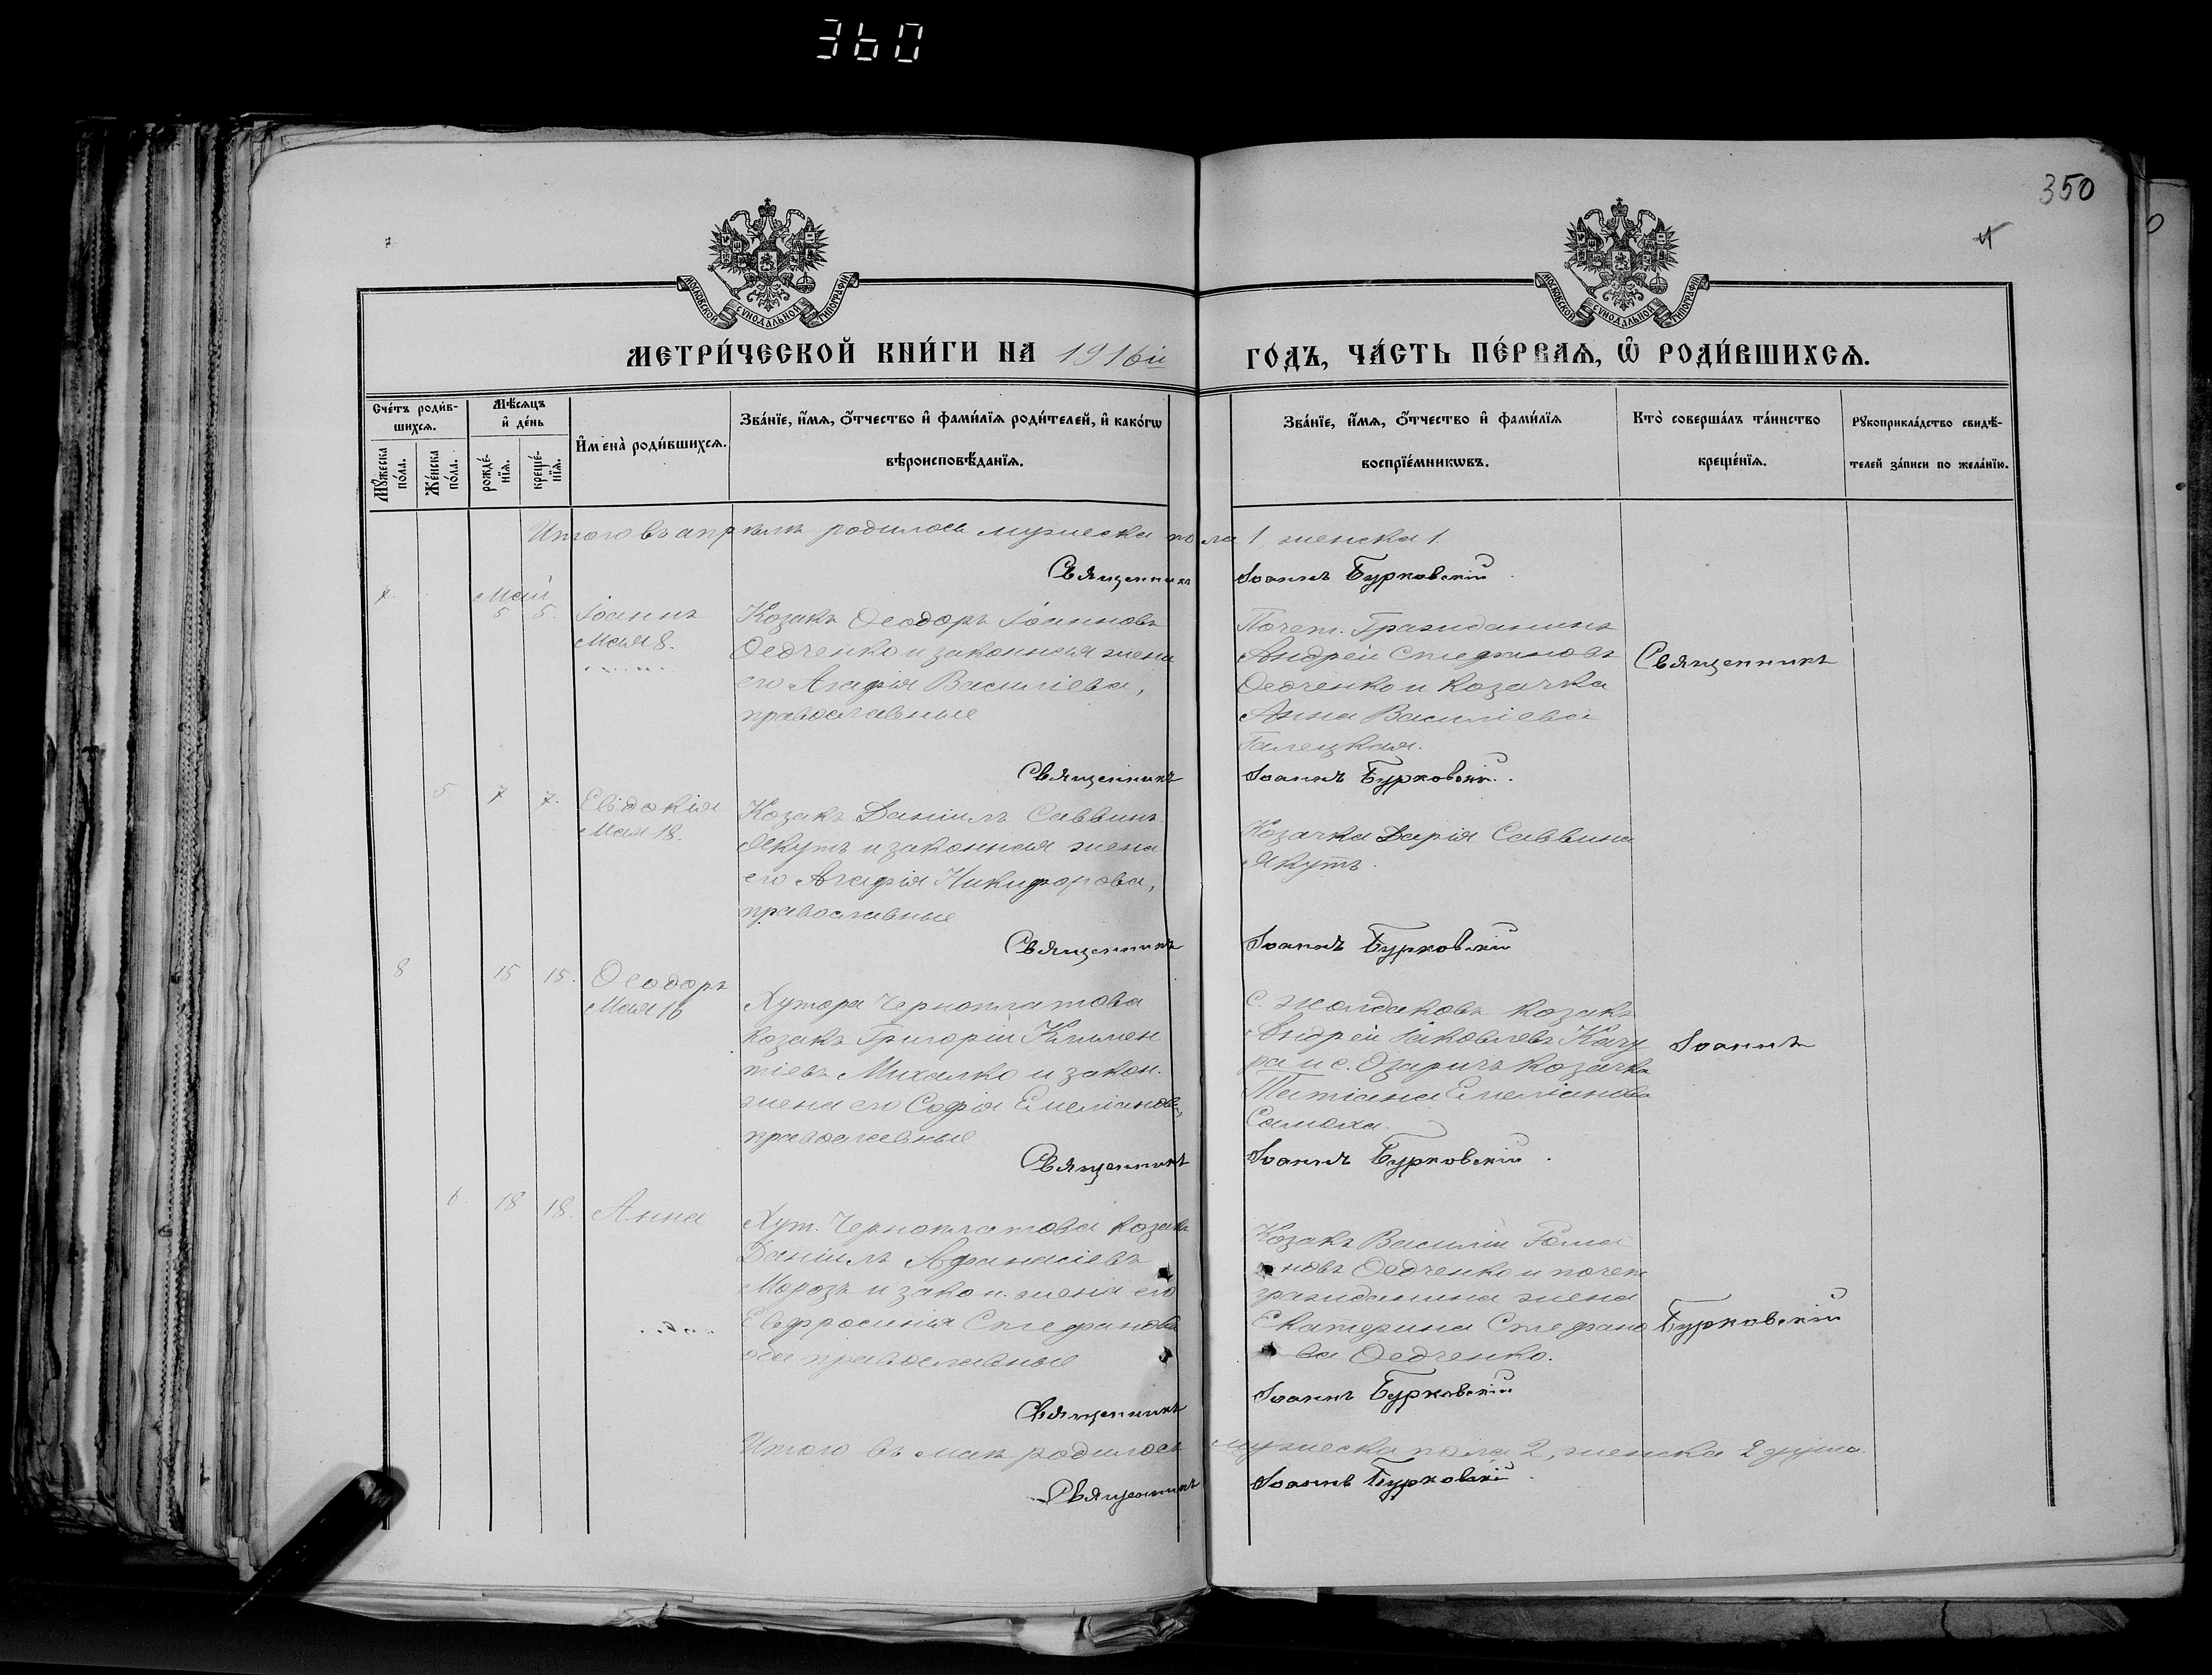 360
350
МОСКОВСКОЙ СУНОДАЛЬНОЙ ТИПОГРАФІИ
МОСКОВСКОЙ СУНОДАЛЬНОЙ ТИПОГРАФІИ
МЕТРИ́ЧЕСКОЙ КНИ́ГИ НА 1916й ГО́ДЪ, ЧА́СТЬ ПЕ́РВАѦ, Ѿ РОДИ́ВШИХСѦ.
Сче́тъ роди́в-
шихсѧ.
Мꙋ́жеска по́ла.
Же́нска по́ла.
Мѣ́сѧцъ и҆ де́нь
рожде́-нїѧ.
креще́-нїѧ.
И҆мена̀ роди́вшихсѧ.
Зва́нїе, и҆́мѧ, ѻ҆́тчество и҆ фами́лїѧ роди́телей, и҆ како́гѡ
вѣроисповѣ́данїѧ.
Зва́нїе, и҆́мѧ, ѻ҆́тчество и҆ фами́лїѧ
воспрїе́мникѡвъ.
Кто̀ соверша́лъ та́инство
креще́нїѧ.
Рꙋкоприкла́дство свидѣ́-
телей за́писи по жела́нїю.
Итого въ апрѣлѣ родилось мужеска пола 1 женска 1.
Священникъ Іоаннъ Бурковскій.
7. Май
5 5. Іоаннъ
Мая 8.
Козакъ Ѳеодоръ Іоанновъ
Ѳедченко и законная жена
его Агафія Василіева,
православные
Почет. Гражданинъ
Андрей Стефановъ
Ѳедченко и козачка
Анна Василіева
Галецкая.
Священникъ
Священникъ Іоаннъ Бурковскій.
5. 7 7. Евдокія
Мая 18.
Козакъ Даніилъ Саввинъ
Якутъ и законная жена
его Агафія Никифорова,
православные
Козачка Дарія Саввина
Якутъ.
Священникъ Іоаннъ Бурковскій
8 15 15. Ѳеодоръ
Мая 16
Хутора Черноплатова
козакъ Григорій Климен
тіевъ Михалко и закон.
жена его Софія Емеліанова,
православные
с. Жолдаковъ козакъ
Андрей Іаковлевъ Качу
ра и с. Озаричъ козачка
Татіана Емеліанова
Іоаннъ
Священникъ Іоаннъ Бурковскій.
6. 18 18. Анна
Хут. Черноплатова козакъ
Даніилъ Афанасіевъ
Морозъ и закон. жена его
Евфросинія Стефанова
оба православные
Козакъ Василій
новъ Ѳедченко и почет
гражданина жена
Екатерина Стефано
ва Ѳедченко.
Бурковскій
Священникъ Іоаннъ Бурковскій
Итого въ маѣ родилось мужеска пола 2, женска 2 души.
Священникъ Іоаннъ Бурковскій.